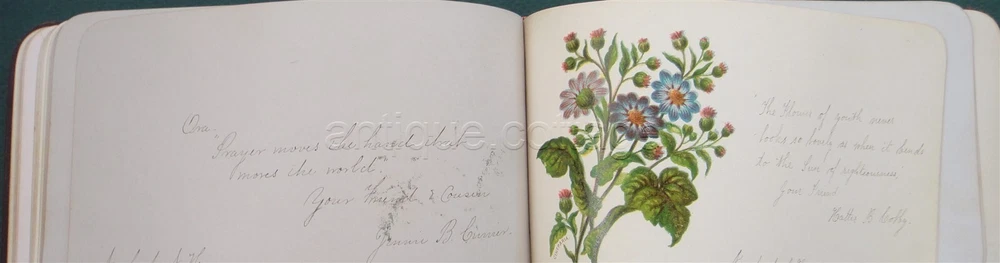 Ora.
"Prayer moves the hand that
moves the world."
Your Friend & Cousin
Jennie B. Currier.
"The Flower of youth never
looks so lovely as when it bends
to the Sun of righteousness.
Your Friend
Hattie B.